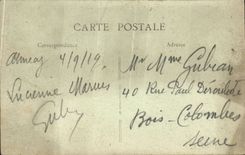 CARTE POSTALE
Correspondance
Adresse
4/9/19
Mr Mme Gubian
Lucienne
40 Rue Paul Déroulède
Bois-Colombes
Seine